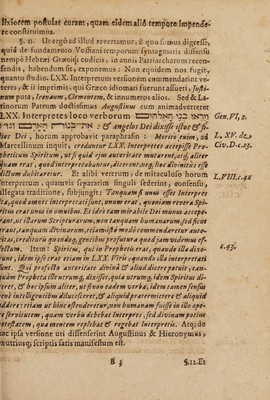 steriorem postulat curam, quam eidem alio tempore impende-
re constituimus.
§. 11. Ut ergò ad illud revertamur, è quo sumus digressi,
quid de fundamento Vossiani temporum syntagmatis dissensu
nempè Hebræi Græciq; codicis, in annis Patriarcharum recen-
sendis, habendum sit, exponemus: Non equidem nos fugit,
quanto studio LXX. Interpretum versionem commendarint ve-
teres, & ii imprimis, qui Græco idiomati fuerunt assueti, Justi-
num puta, Irenæum, Clementem, & innumeros alios. Sed & La-
tinorum Patrum doctissimus Augustinus cum animadverteret
LXX. Interpretes loco verborum ויראו בני האלהים
: & angelos Dei dixisse istos & fi-
lios Dei, horum approbavit paraphrasin: Meritò enim, ad
Marcellinum inquit, creduntur LXX. Interpretes accepisse Pro-
pheticum Spiritum, ut si quid ejus autoritate mutarent, atq; aliter
quam erat, quod interpretabantur, dicerent, neq; hoc divinitus esse
dictum dubitaretur. Et alibi veterum, de miraculoso horum
Interpretum, quamvis separatim singuli sederint, consensu,
allegata traditione, subjungit: Tanquam si unus esset Interpres
ita, quod omnes interpretati sunt, unum erat, quoniam revera Spi-
ritus erat unus in omnibus. Et ideò tam mirabile Dei munus accepe-
rant, ut illarum Scripturarum, non tanquam humanarum, sed sicut
erant, tanquam divinarum, etiam isto modo commendaretur auto-
ritas, credituris quandoq; gentibus profutura quod jam videmus ef-
fectum. Item: Spiritus, qui in Prophetis erat, quando illa dixe-
runt, idem ipse erat etiam in LXX. Viris, quando illa interpretati
sunt. Qui profectò autoritate divinâ & aliud dicere potuit, tan-
quam Propheta ille utrumq; dixisset, quia utrumq; idem Spiritus di-
ceret, & hoc ipsum aliter, ut si non eadem verba, idem tamen sensus
benè intelligentibus dilucesceret, & aliquid prætermittere & aliquid
addere: etiam ut hinc ostenderetur, non humanam fuisse in illo ope-
re servitutem, quam verbis debebat Interpres, sed divinam potius
potestatem, quæ mentem replebat & regebat Interpretis. Atq; de
hac ipsa versione uti dissenserint Augustinus & Hieronymus,
ex utriusq; scriptis satis manifestum est.
Gen. VI, 2.
L. XV. de
Civ. D. c. 23.
L. VIII. c. 42
c. 43.
B 3
§. 12. Et